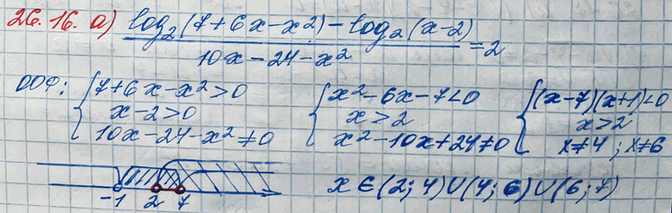 26.16. а) (log₂(7+6x-x²)-log₂(x-2))/(10x-24-x²)=2
ООФ: { 7+6x-x²>0 { x²-6x-7<0 { (x-7)(x+1)<0
x-2>0 x>2 x>2
10x-24-x²≠0 x²-10x+24≠0 x≠4; x≠6
-1 2 7 x∈(2;4)∪(4;6)∪(6;7)